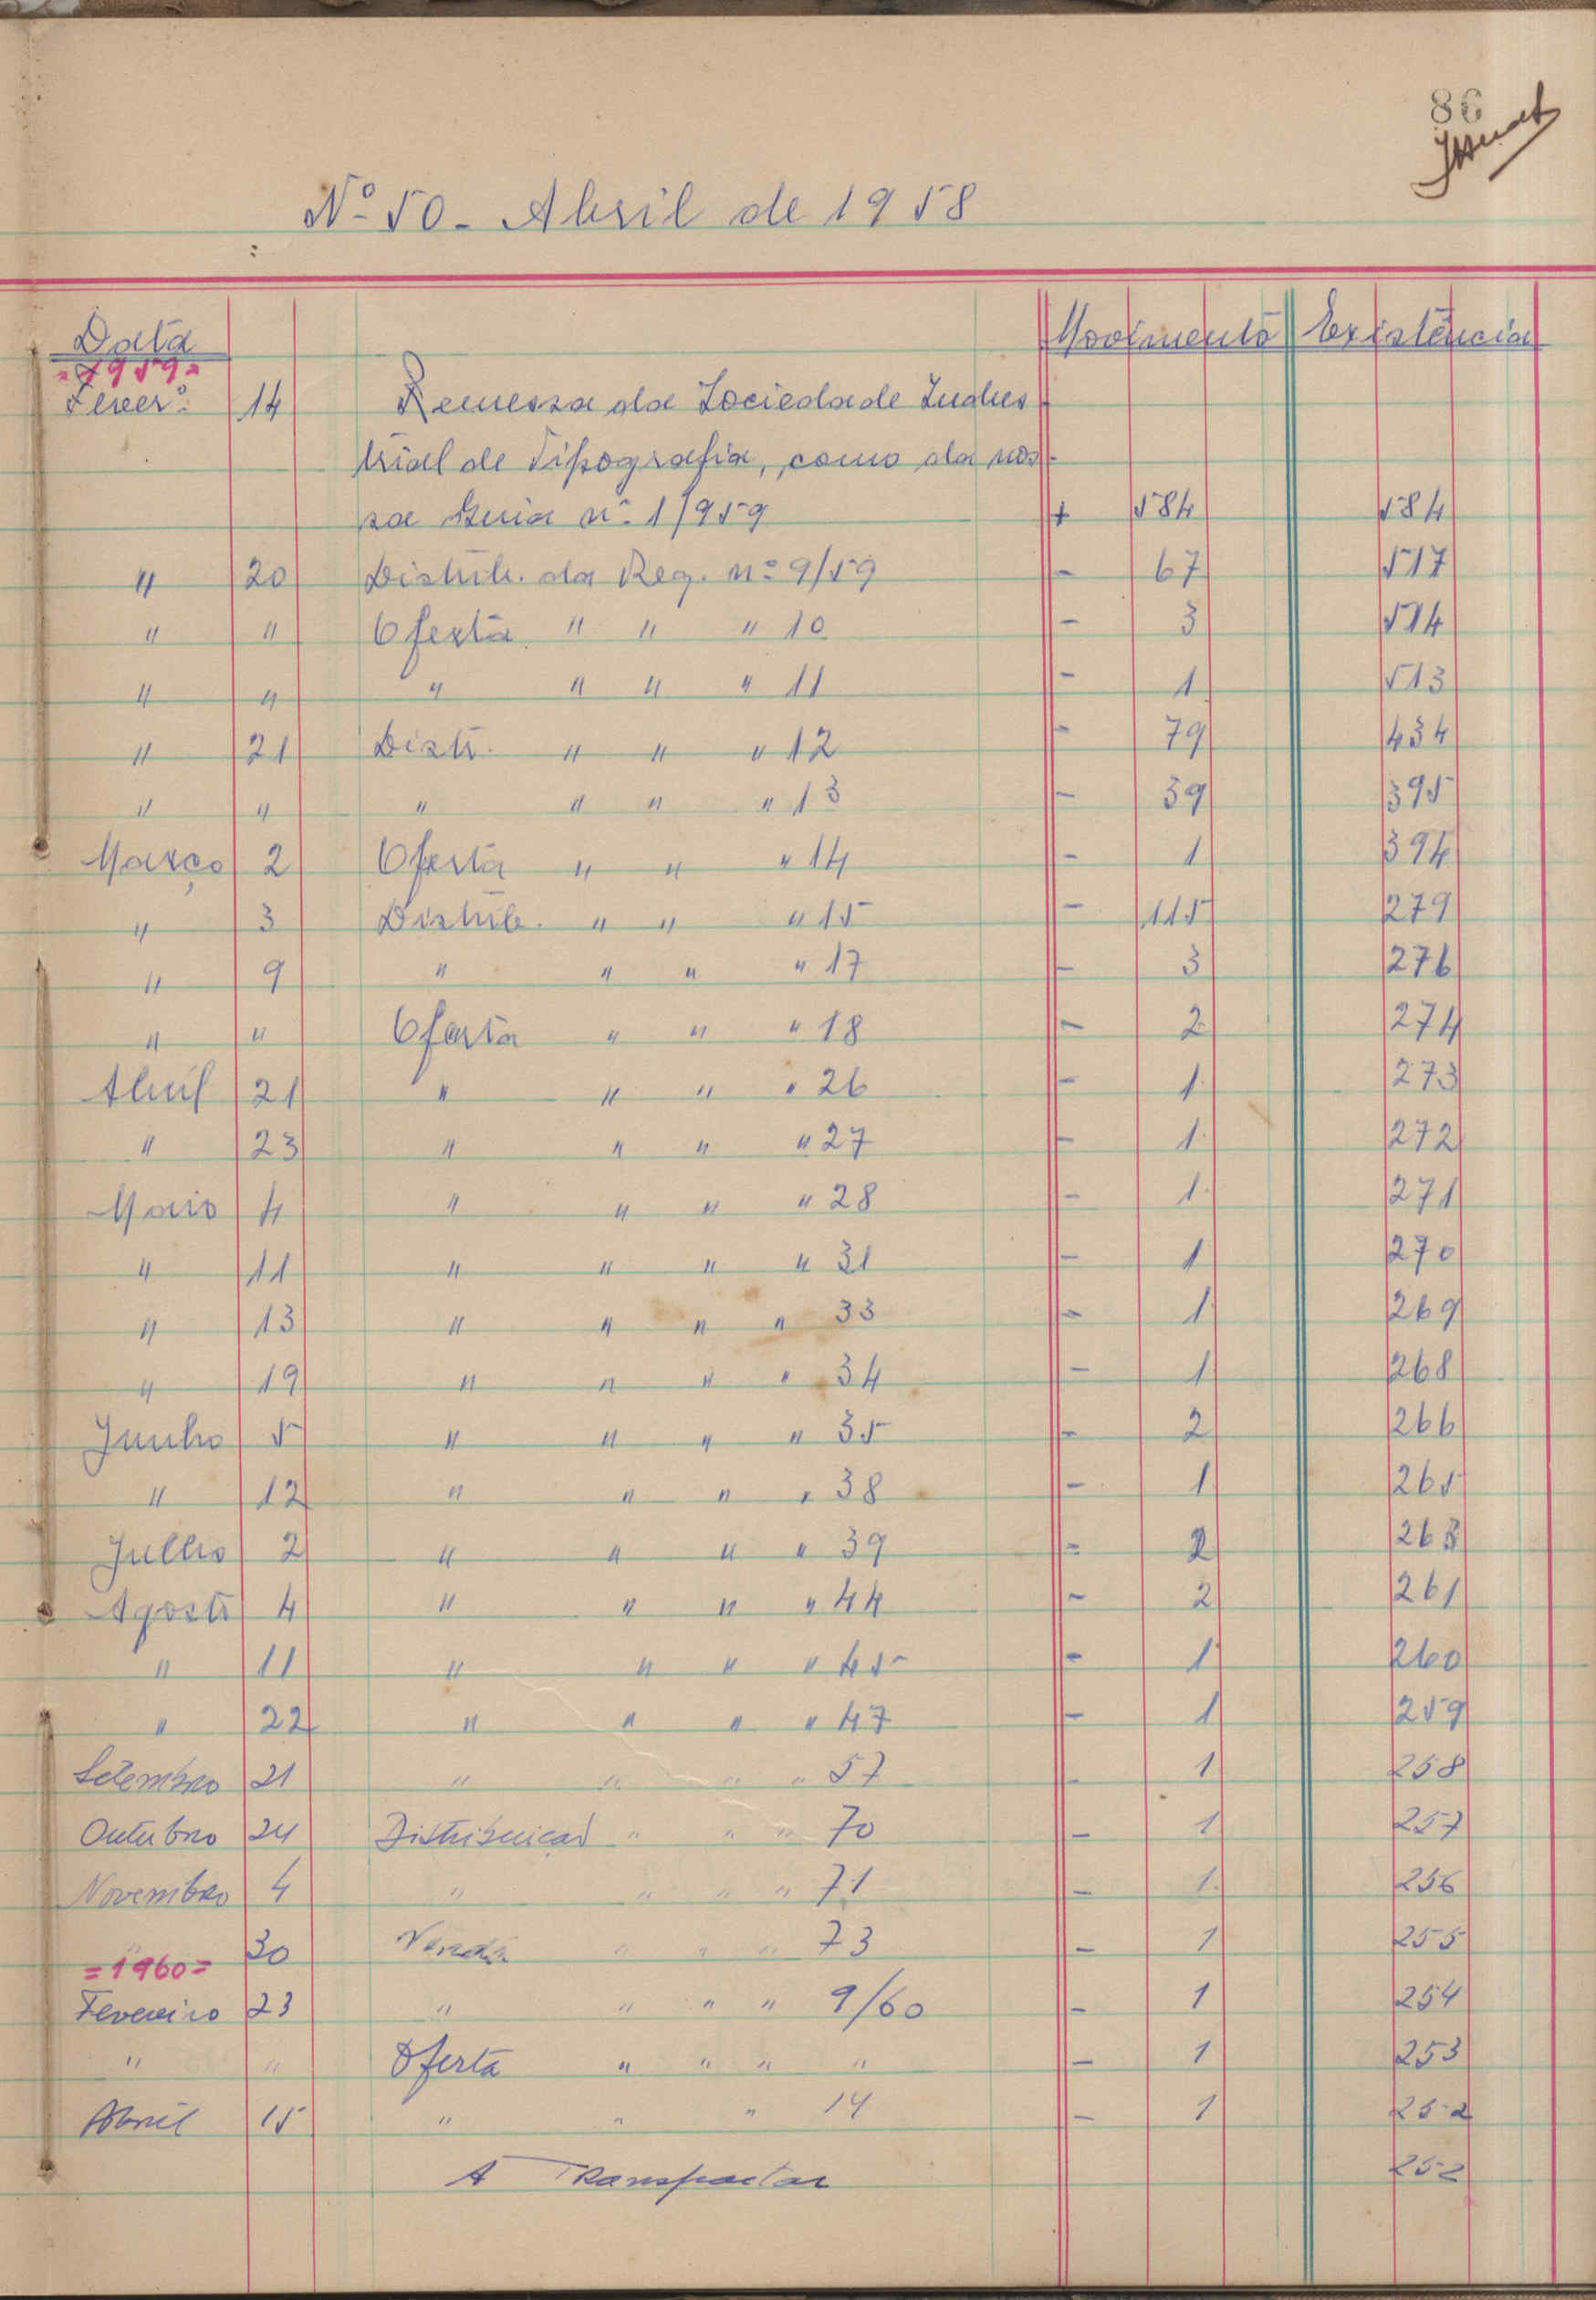 86
Nº 50 - Abril de 1958
Data Movimento Existência
= 1959 =
Feverº 14 Remessa da Sociedade Indus-
trial de Tipografia, como da nos-
sa Guia nº 1/959 + 584 584
" 20 Distrib. da Req. nº 9/59 - 67 517
" " Oferta " " " 10 - 3 514
" " " " " " 11 - 1 513
" 21 Distr. " " " 12 - 79 434
" " " " " " 13 - 39 395
Março 2 Oferta " " " 14 - 1 394
" 3 Distrib. " " " 15 - 115 279
" 9 " " " " 17 - 3 276
" " Oferta " " " 18 - 2 274
Abril 21 " " " " 26 - 1 273
" 23 " " " " 27 - 1 272
Maio 4 " " " " 28 - 1 271
" 11 " " " " 31 - 1 270
" 13 " " " " 33 - 1 269
" 19 " " " " 34 - 1 268
Junho 5 " " " " 35 - 2 266
" 12 " " " " 38 - 1 265
Julho 2 " " " " 39 - 2 263
Agosto 4 " " " " 44 - 2 261
" 11 " " " " 45 - 1 260
" 22 " " " " 47 - 1 259
Setembro 21 " " " " 57 - 1 258
Outubro 24 Distribuição " " " 70 - 1 257
Novembro 4 " " " " 71 - 1 256
" 30 Venda " " " 73 - 1 255
= 1960 =
Fevereiro 23 " " " " 9/60 - 1 254
" " Oferta " " " " - 1 253
Abril 15 " " " 14 - 1 252
A Transportar 252